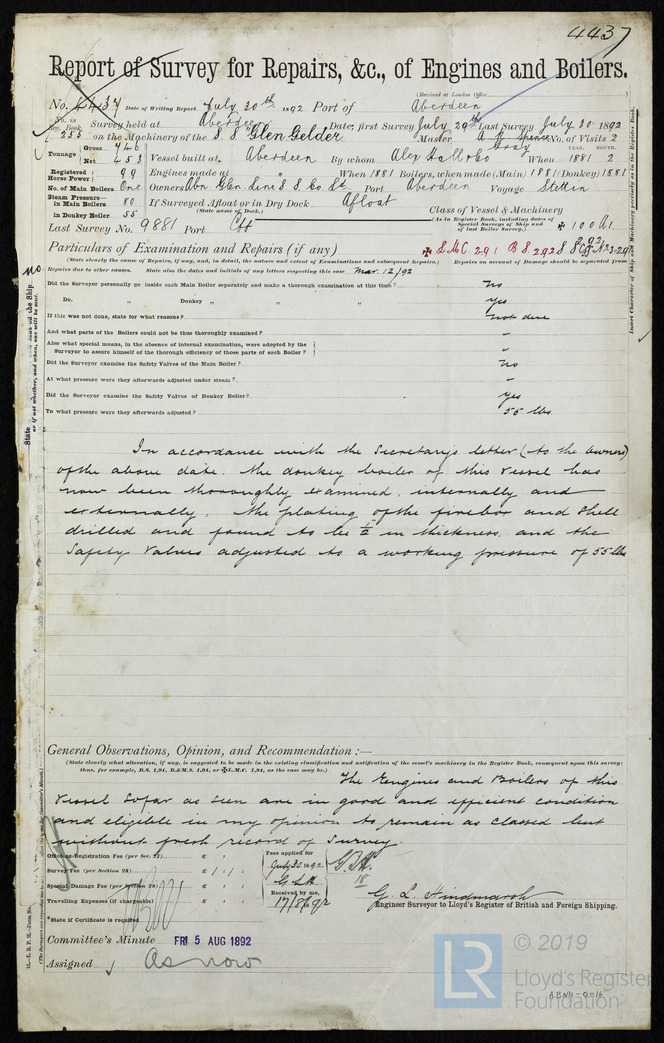 4437
Report of Survey for Repairs, &c., of Engines and Boilers.
(Received at London Office
No. 4437 Date of Writing Report July 30th 1892 Port of Aberdeen
No. in Reg. Book. Survey held at Aberdeen Date: first Survey July 29th Last Survey July 30 1892
253 on the Machinery of the S.S. "Glen Gelder" Master No. of Visits 2
Tonnage Gross 746 Net 453 Vessel built at Aberdeen By whom When 1881 2
YEAR. MONTH.
Registered Horse Power 99 Engines made at " " When 1881 Boilers, when made (Main) 1881 (Donkey) 1881
No. of Main Boilers One Owners Abn Glen Line S.S. Co. Ld. Port Aberdeen Voyage Stettin
Steam Pressure in Main Boilers 80 If Surveyed Afloat or in Dry Dock Afloat
(State name of Dock.)
in Donkey Boiler 55 Class of Vessel & Machinery
(As in Register Book, including dates of Special Surveys of Ship and of last Boiler Survey.) 100A1
Last Survey No. 9881 Port Cff
Particulars of Examination and Repairs (if any) L.M.C. 2.91 B.S. 2.92
(State clearly the cause of Repairs, if any, and, in detail, the nature and extent of Examinations and subsequent Repairs.) Repairs on account of Damage should be separated from
Repairs due to other causes. State also the dates and initials of any letters respecting this case Mar. 12/92
Did the Surveyor personally go inside each Main Boiler separately and make a thorough examination at this time? No
Do. " Donkey " " " Yes
If this was not done, state for what reasons? not due
And what parts of the Boilers could not be thus thoroughly examined? "
Also what special means, in the absence of internal examination, were adopted by the
Surveyor to assure himself of the thorough efficiency of those parts of each Boiler? "
Did the Surveyor examine the Safety Valves of the Main Boiler? No
At what pressure were they afterwards adjusted under steam? "
Did the Surveyor examine the Safety Valves of Donkey Boiler? Yes
To what pressure were they afterwards adjusted? 55 lbs
In accordance with the Secretary's letter (to the owners)
of the above date. the donkey boiler of this vessel has
now been thoroughly examined, internally and
externally, the plating of the firebox and shell
drilled and found to be in thickness, and the
Safety Valves adjusted to a working pressure of 55 lbs
General Observations, Opinion, and Recommendation :—
(State clearly what alteration, if any, is suggested to be made in the existing classification and notification of the vessel's machinery in the Register Book, consequent upon this survey;
thus, for example, B.S. 1,91, B.&M.S. 1,91, or L.M.C. 1,91, as the case may be.)
The Engines and Boilers of this
Vessel so far as seen are in good and efficient condition
and eligible in my opinion to remain as classed but
without fresh record of Survey
Office or Registration Fee (per Sec. 27) £ : :
Survey Fee (per Section 28) £ 1 : 1 :
Special Damage Fee (per Section 28) £ : :
Travelling Expenses (if chargeable) £ : :
Fees applied for
July 30 1892
Received by me,
17/8/1892
G. L. Hindmarsh
Engineer Surveyor to Lloyd's Register of British and Foreign Shipping.
*State if Certificate is required
Committee's Minute FRI 5 AUG 1892
Assigned As now
Insert Character of Ship and Machinery precisely as in the Register Book.
© 2019
LR Lloyd's Register Foundation
ABN11-0016